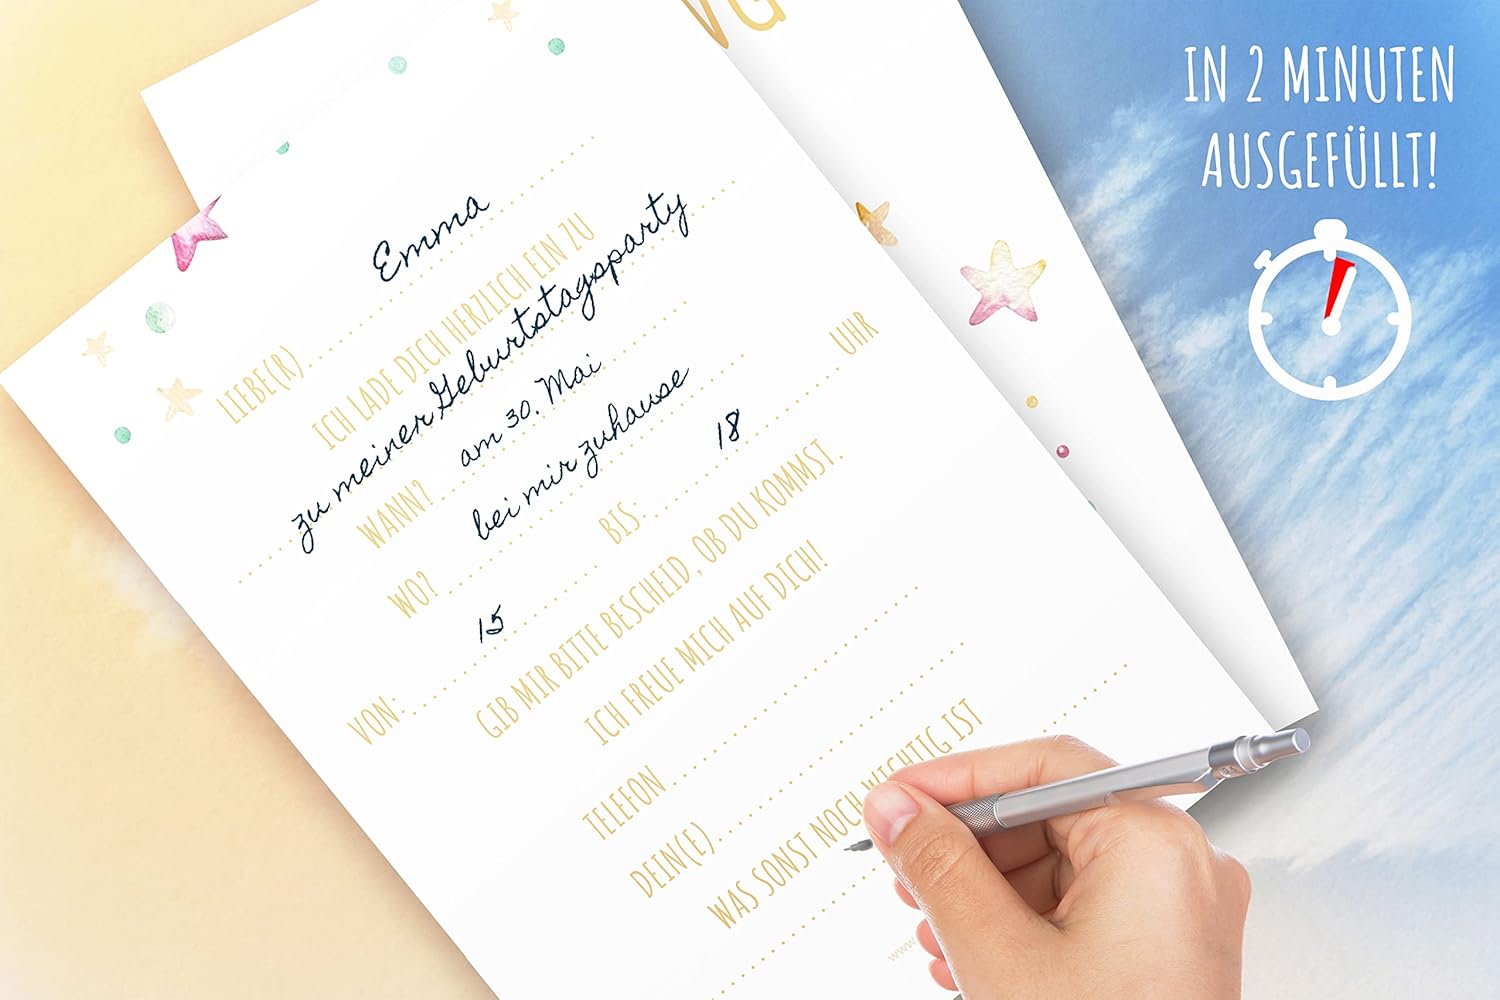 VG
IN 2 MINUTEN
AUSGEFÜLLT!
LIEBE(R)............ Emma
ICH LADE DICH HERZLICH EIN ZU
zu meiner Geburtstagsparty
WANN? am 30. Mai
WO? bei mir zuhause
VON: 15 BIS: 18 UHR
GIB MIR BITTE BESCHEID, OB DU KOMMST.
ICH FREUE MICH AUF DICH!
TELEFON
DEIN(E)
WAS SONST NOCH WICHTIG IST
www.